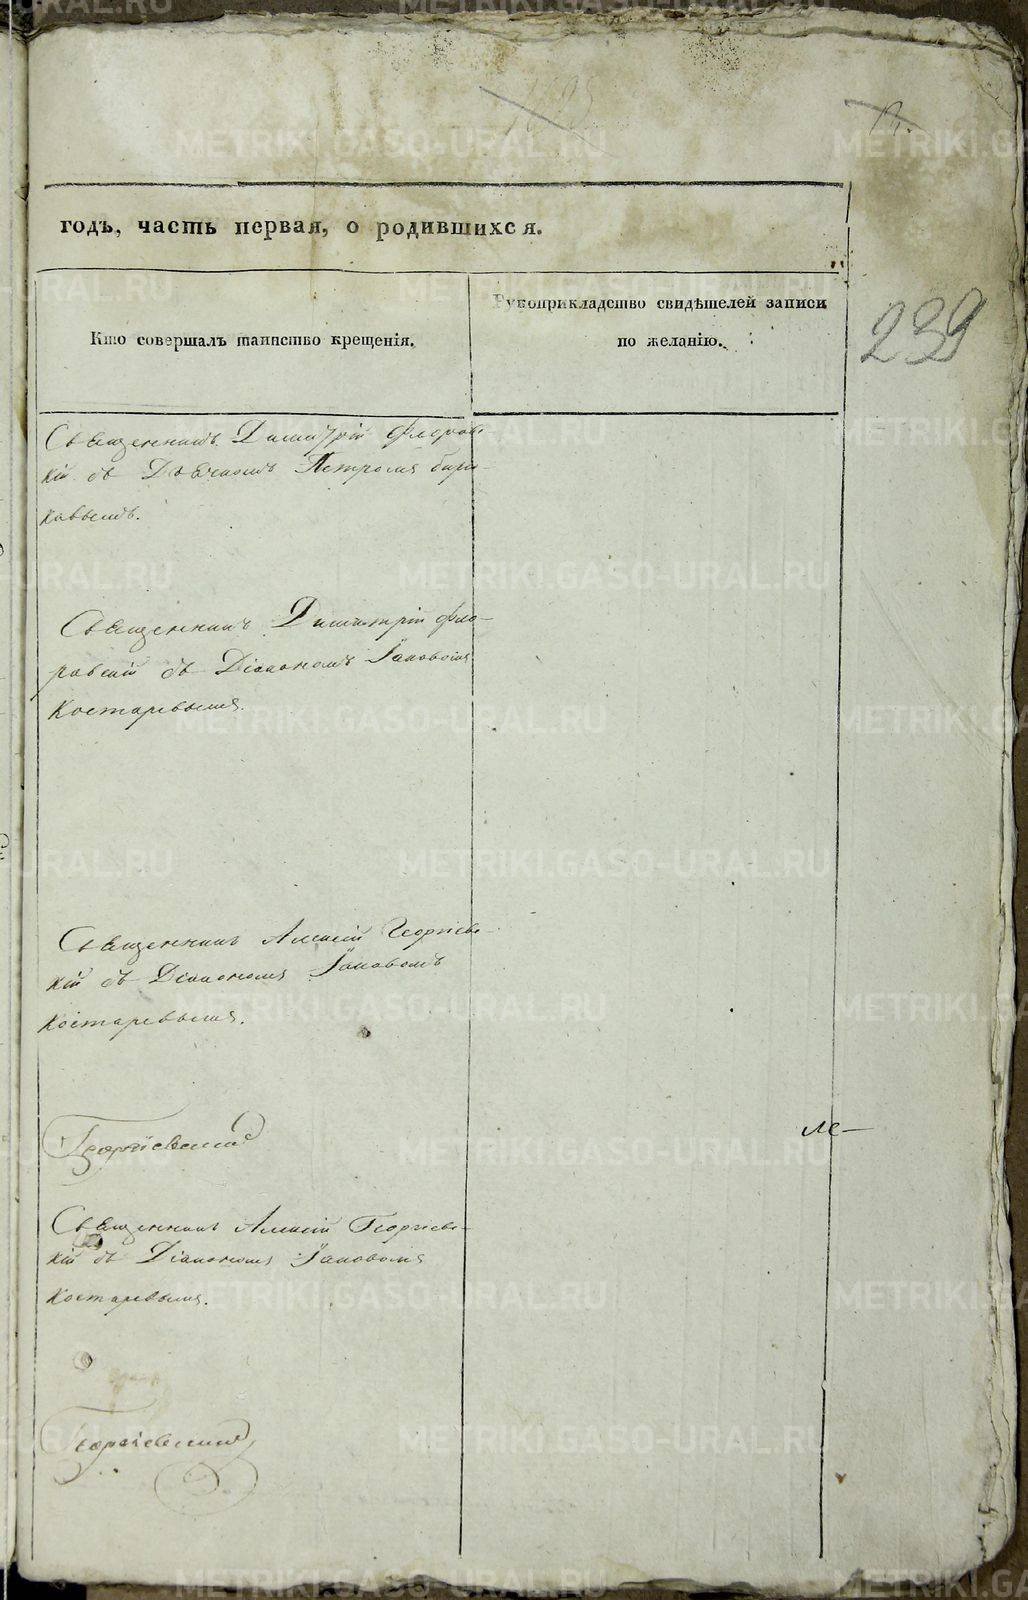 годъ, часть первая, о родившихся.
Кто совершалъ таинство крещенія.
Рукоприкладство свидѣтелей записи
по желанію.
239
Священникъ Димитрій Флоров-
кій съ Дьячкомъ Петромъ Бирю-
ковымъ.
Священникъ Димитрій Фло-
ровскій съ Діакономъ Іаковомъ
Костаревымъ.
Священникъ Алексій Георгіевс-
кій съ Діакономъ Іаковомъ
Костаревымъ.
Георгіевскій
ле-
Священникъ Алексій Георгіевс-
кій съ Діакономъ Іаковомъ
Костаревымъ.
Георгіевскій
METRIKI.GASO-URAL.RU